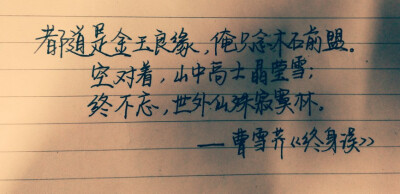 都道是金玉良缘，俺只念木石前盟。
空对着，山中高士晶莹雪；
终不忘，世外仙姝寂寞林。
——曹雪芹《终身误》